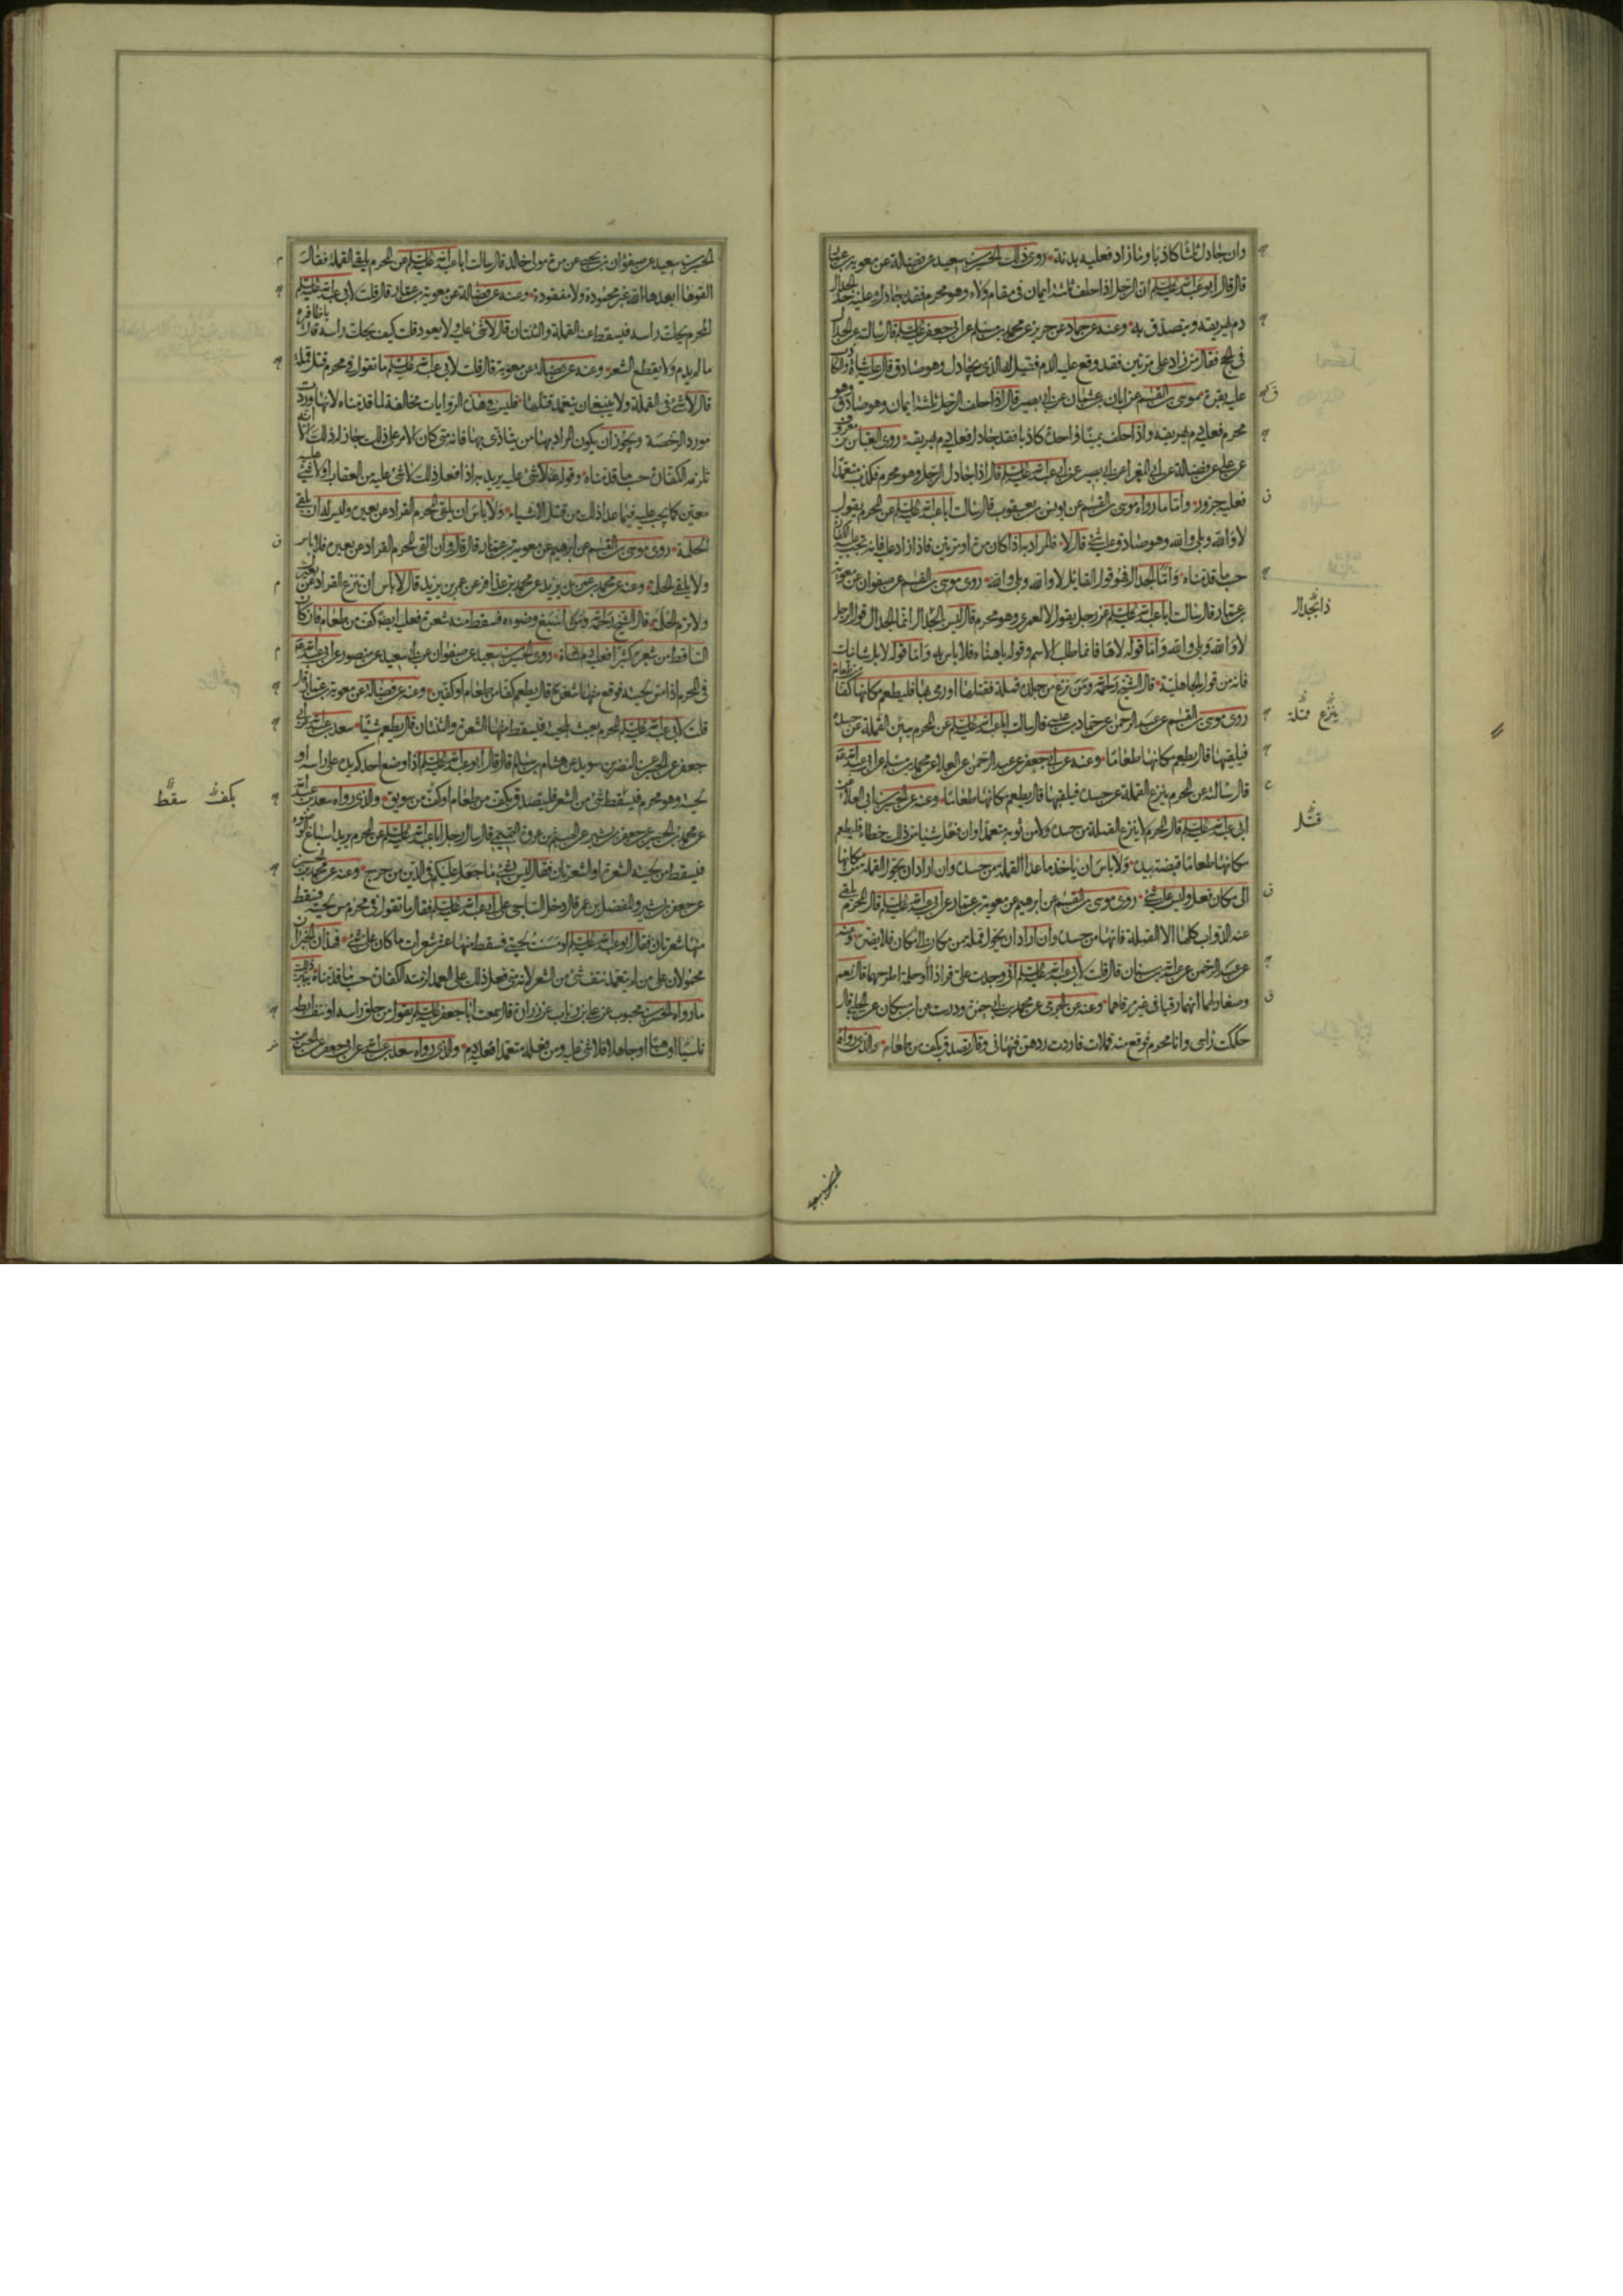 وان جادل ثلثا كاذبا وما زاد فعليه بدنة روى ذلك الحسين بن سعيد عن فضالة عن معوية بن عمار
قال قال ابو عبد الله عليه السلم ان الرجل اذا حلف ثلثة ايمان في مقام ولاء وهو محرم فقد جادل وعليه حد الجدال
دم يهريقه ويتصدق به وعنه عن حماد عن حريز عن محمد بن مسلم عن ابي جعفر عليه السلم قال سالته عن الجدال
في الحج فقال من زاد على مرتين فقد وقع عليه الدم فقيل له الذي يجادل وهو صادق قال عليه شاة والكاذب
عليه بقرة موسى بن القسم عن ابان بن عثمان عن ابي بصير قال اذا حلف الرجل ثلثة ايمان وهو صادق وهو
محرم فعليه دم يهريقه واذا حلف يمينا واحدة كاذبا فقد جادل فعليه دم يهريقه روى العباس بن معروف
عن علي عن فضالة عن ابي المغرا عن ابي بصير عن ابي عبد الله عليه السلم قال اذا جادل الرجل وهو محرم فكذب متعمدا
فعليه جزور واما ما رواه موسى بن القسم عن يونس بن يعقوب قال سالت ابا عبد الله عليه السلم عن المحرم يقول
لا والله وبلى والله وهو صادق عليه شئ قال لا فالمراد به اذا كان مرة او مرتين فاذا زاد عليه فانه تجب عليه الكفارة
حسب ما قدمناه واما الجدال فهو قول القائل لا والله وبلى والله روى موسى بن القسم عن صفوان عن معوية
بن عمار قال سالت ابا عبد الله عليه السلم عن رجل يقول لا لعمري وهو محرم قال ليس بالجدال انما الجدال قول الرجل
لا والله وبلى والله واما قوله لاها فانما طلب الاسم وقوله يا هناه فلا باس به واما قوله لا بل شانيك
فانه من قول الجاهلية قال الشيخ رحمه الله ومن نزع من جسده قملة فقتلها او رمى بها فليطعم مكانها كفا من طعام
روى موسى بن القسم عن عبد الرحمن عن حماد بن عيسى قال سالت ابا عبد الله عليه السلم عن المحرم يبين القملة عن جسده
فيلقيها قال يطعم مكانها طعاما وعنه عن ابي جعفر عن عبد الرحمن عن العلا عن محمد بن مسلم عن ابي عبد الله
قال سالته عن المحرم ينزع القملة عن جسده فيلقيها قال يطعم مكانها طعاما وعنه عن الحسين بن ابي العلا عن
ابي عبد الله عليه السلم قال المحرم لا ينزع القملة من جسده ولا من ثوبه متعمدا وان فعل شيئا من ذلك خطاء فليطعم
مكانها طعاما قبضة بيده ولا باس ان ياخذ ما عدا القملة من جسده وان اراد ان يحول القملة من مكانها
الى مكان فعل وليس عليه شئ روى موسى بن القسم عن ابرهيم عن معوية بن عمار عن ابي عبد الله عليه السلم قال المحرم يلقي
عنه الدواب كلها الا القملة فانها من جسده وان اراد ان يحول قملة من مكان الى مكان فلا يضره وعنه
عن عبد الرحمن عن عبد الله بن سنان قال قلت لابي عبد الله عليه السلم اني وجدت علي قرادا او حلمة اطرحهما قال نعم
وصغار لهما انهما رقيا في غير مرقاهما وعنه عن الجرمي عن محمد بن ابي حمزة ودرست عن ابن مسكان عن الحلبي قال
حككت راسي وانا محرم فوقع منه قملات فاردت ردهن فنهاني وقال تصدق بكف من طعام والذي رواه
ذا الجدال
ينزع قملة
قتل
الحسين بن سعيد
الحسين بن سعيد عن صفوان بن يحيى عن مرة مولى خالد قال سالت ابا عبد الله عليه السلم عن المحرم يلقي القملة فقال
القوها ابعدها الله غير محمودة ولا مفقودة وعنه عن فضالة عن معوية بن عمار قال قلت لابي عبد الله عليه السلم
المحرم يحك راسه فيسقط عنه القملة والثنتان قال لا شئ عليه ولا يعود قلت كيف يحك راسه قال باظافيره
ما لم يدم ولا يقطع الشعر وعنه عن فضالة عن معوية قال قلت لابي عبد الله عليه السلم ما تقول في محرم قتل قملة
قال لا شئ في القملة ولا ينبغي ان يتعمد قتلها فليس في هذه الروايات مخالفة لما قدمناه لانها وردت
مورد الرخصة ويجوز ان يكون المراد بها من يتاذى بها فانه متى كان الامر على ذلك جاز له ذلك الا انه
تلزمه الكفارة حسب ما قدمناه وقوله لا شئ عليه يريد به اذا فعل ذلك لا شئ عليه من العقاب او لا شئ عليه
معين كما يجب عليه فيما عدا ذلك من قتل الاشياء ولا باس ان يلقي المحرم القراد عن بعيره وليس له ان يلقي
الحلمة روى موسى بن القسم عن ابرهيم عن معوية بن عمار قال قال وان القى المحرم القراد عن بعيره فلا باس
ولا يلقي الحلمة وعنه عن محمد بن عمر بن يزيد عن محمد بن عذافر عن عمر بن يزيد قال لا باس ان تنزع القراد عن بعيرك
ولا ترم الحلمة قال الشيخ رحمه الله ومتى اسبغ وضوءه فسقط منه شعر فعليه ايضا كف من طعام فان كان
الساقط من شعره كثيرا فعليه دم شاة روى الحسين بن سعيد عن صفوان عن ابي سعيد عن منصور عن ابي عبد الله
في المحرم اذا مس لحيته فوقع منها شعرة قال يطعم كفا من طعام او كفين وعنه عن فضالة عن معوية بن عمار قال
قلت لابي عبد الله عليه السلم المحرم يعبث بلحيته فيسقط منها الشعرة والثنتان قال يطعم شيئا سعد بن عبد الله عن ابي
جعفر عن الحسين عن النضر بن سويد عن هشام بن سالم قال قال ابو عبد الله عليه السلم اذا وضع احدكم يده على راسه او
لحيته وهو محرم فيسقط شئ من الشعر فليتصدق بكف من طعام او كف من سويق والذي رواه سعد بن عبد الله
عن محمد بن الحسين عن جعفر بن بشير عن الهيثم بن عروة التميمي قال سال رجل ابا عبد الله عليه السلم عن المحرم يريد اسباغ الوضوء
فيسقط من لحيته الشعرة او الشعرتان فقال ليس بشئ ما جعل عليكم في الدين من حرج وعنه عن محمد بن الحسين
عن جعفر بن بشير والمفضل بن عمر قال دخل الناجي على ابي عبد الله عليه السلم فقال ما تقول في محرم مس لحيته فسقط
منها شعرتان فقال ابو عبد الله عليه السلم لو مسست لحيتي فسقط منها عشر شعرات ما كان علي شئ فهذان الخبران
محمولان على من لم يتعمد نتف شئ من الشعر لانه متى فعل ذلك على العمد لزمته الكفارة حسب ما قدمناه يبين ذلك
ما رواه الحسن بن محبوب عن علي بن رئاب عن زرارة قال سمعت ابا جعفر عليه السلم يقول من حلق راسه او نتف ابطه
ناسيا او ساهيا او جاهلا فلا شئ عليه ومن فعله متعمدا فعليه دم والذي رواه سعد بن عبد الله عن ابي جعفر عن الحسن بن
بكف سقط